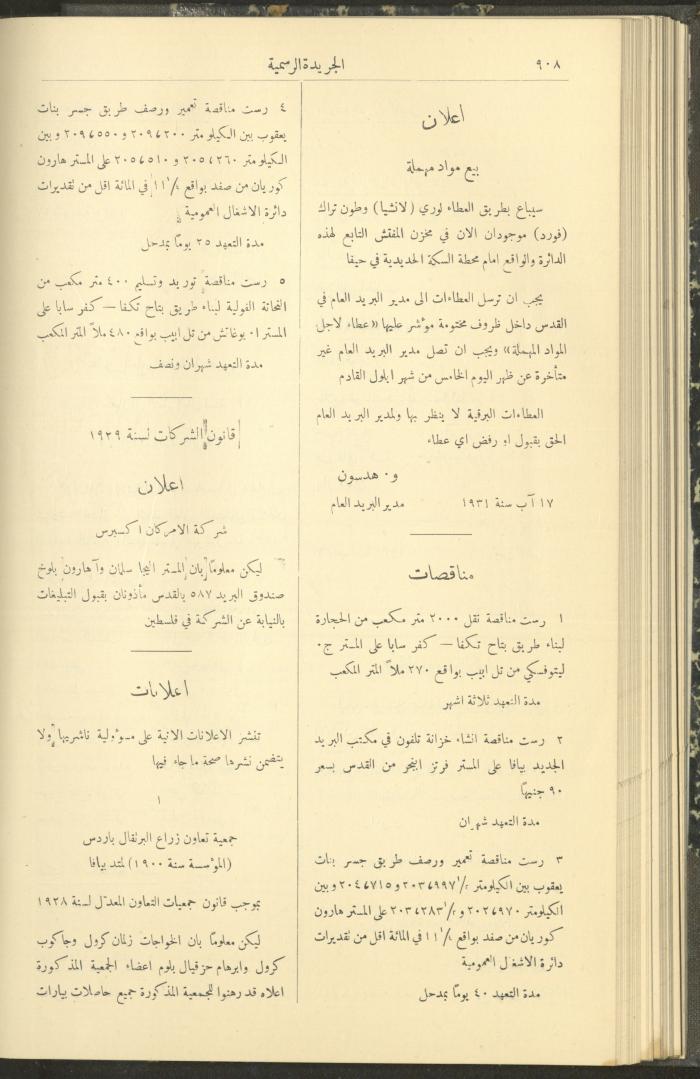 ٩٠٨
الجريدة الرسمية
اعلان
بيع مواد مهملة
سيباع بطريق العطاء لوري (لانشيا) وطون تراك
(فورد) موجودان الان في مخزن المفتش التابع لهذه
الدائرة والواقع امام محطة السكة الحديدية في حيفا
يجب ان ترسل العطاءات الى مدير البريد العام في
القدس داخل ظروف مختومة مؤشر عليها «عطاء لاجل
المواد المهملة» ويجب ان تصل مدير البريد العام غير
متأخرة عن ظهر اليوم الخامس من شهر ايلول القادم
العطاءات البرقية لا ينظر بها ولمدير البريد العام
الحق بقبول او رفض اي عطاء
و٠ هدسون
١٧ آب سنة ١٩٣١ مدير البريد العام
مناقصات
١ رست مناقصة نقل ٢٠٠٠ متر مكعب من الحجارة
لبناء طريق بتاح تكفا — كفر سابا على المستر ج٠
ليتوفسكي من تل ابيب بواقع ٢٧٠ ملاً المتر المكعب
مدة التعهد ثلاثة اشهر
٢ رست مناقصة انشاء خزانة تلفون في مكتب البريد
الجديد بيافا على المستر فرتز اينجر من القدس بسعر
٩٠ جنيهاً
مدة التعهد شهران
٣ رست مناقصة تعمير ورصف طريق جسر بنات
يعقوب بين الكيلومتر ٢٠٣٬٩٩٧ و ٢٠٤٬٧١٥ وبين
الكيلومتر ٢٠٢٬٩٧٠ و ٢٠٣٬٢٨٣ على المستر هارون
كوريان من صفد بواقع ١١ في المائة اقل من تقديرات
دائرة الاشغال العمومية
مدة التعهد ٤٠ يوماً بمدحل
٤ رست مناقصة تعمير ورصف طريق جسر بنات
يعقوب بين الكيلو متر ٢٠٩٬٢٠٠ و ٢٠٩٬٥٥٠ وبين
الكيلو متر ٢٠٥٬٢٦٠ و ٢٠٥٬٥١٠ على المستر هارون
كوريان من صفد بواقع ١١ في المائة اقل من تقديرات
دائرة الاشغال العمومية
مدة التعهد ٢٥ يوماً بمدحل
٥ رست مناقصة توريد وتسليم ٤٠٠ متر مكعب من
النحاتة الفولية لبناء طريق بتاح تكفا — كفر سابا على
المستر ا٠ بوغاتش من تل ابيب بواقع ٤٨٠ ملاً المتر المكعب
مدة التعهد شهران ونصف
قانون الشركات لسنة ١٩٢٩
اعلان
شركة الامركان اكسبرس
ليكن معلوماً بان المستر ايجا سلمان وآهارون بلوخ
صندوق البريد ٥٨٧ بالقدس مأذونان بقبول التبليغات
بالنيابة عن الشركة في فلسطين
اعلانات
تنشر الاعلانات الاتية على مسؤولية ناشريها ولا
يتضمن نشرها صحة ما جاء فيها
١
جمعية تعاون زراع البرتقال باردس
(المؤسسة سنة ١٩٠٠) لمتد بيافا
بموجب قانون جمعيات التعاون المعدل لسنة ١٩٢٨
ليكن معلوماً بان الخواجات زلمان كرول وجاكوب
كرول وابرهام حزقيال بلوم اعضاء الجمعية المذكورة
اعلاه قد رهنوا للجمعية المذكورة جميع حاصلات بيارات